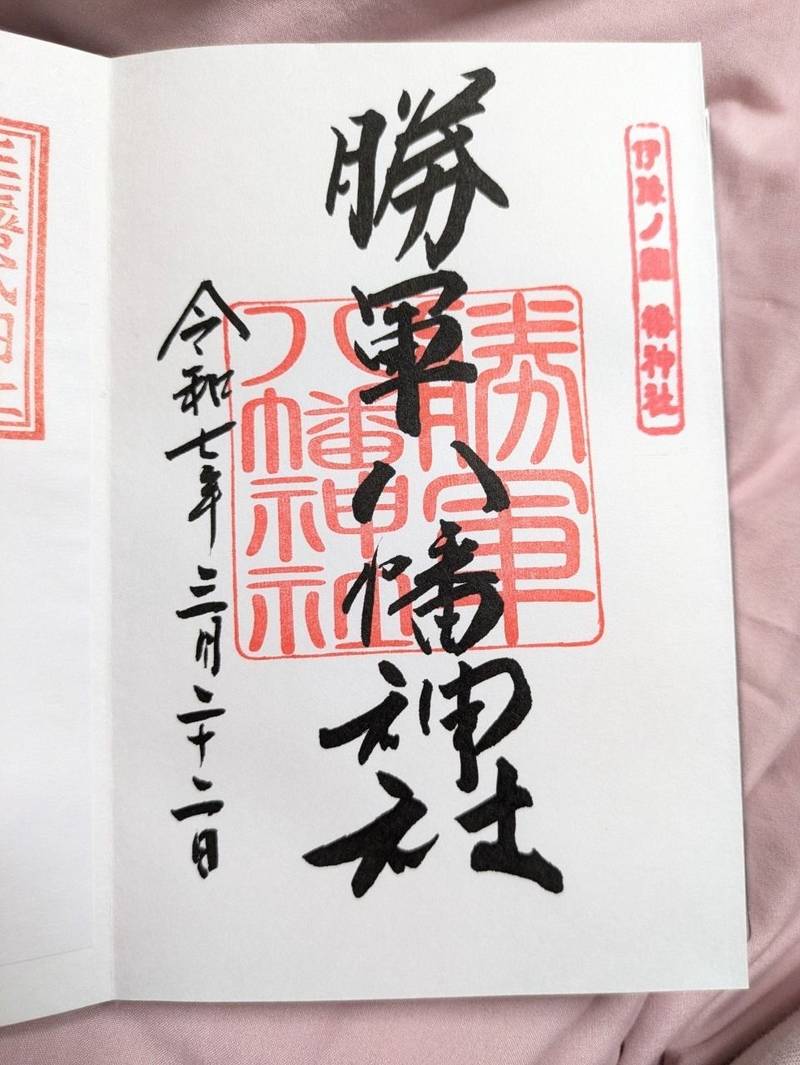 伊豫ノ國 椿神社
勝軍八幡神社
勝軍
八幡神社
令和七年三月二十二日